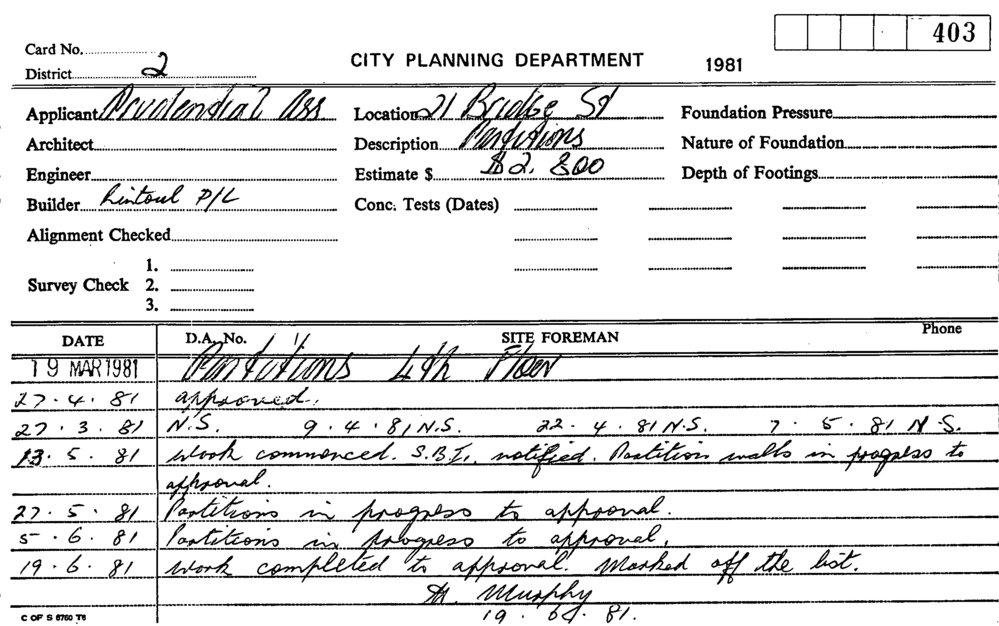 403
Card No.
District 2
CITY PLANNING DEPARTMENT 1981
Applicant Prudential Ass Location 21 Bridge St Foundation Pressure
Architect Description Partitions Nature of Foundation
Engineer Estimate $ $2,800 Depth of Footings
Builder Lintoul P/L Conc. Tests (Dates)
Alignment Checked
1.
Survey Check 2.
3.
DATE D.A. No. SITE FOREMAN Phone
19 MAR 1981 Partitions 4th Floor
27.4.81 approved.
27.3.81 N.S. 9.4.81 N.S. 22.4.81 N.S. 7.5.81 N.S.
13.5.81 work commenced. S.B.I. notified. Partition walls in progress to
approval.
27.5.81 Partitions in progress to approval.
5.6.81 Partitions in progress to approval.
19.6.81 work completed to approval. Marked off the list.
M. Murphy
19.6.81.
C OF S 8760 T6